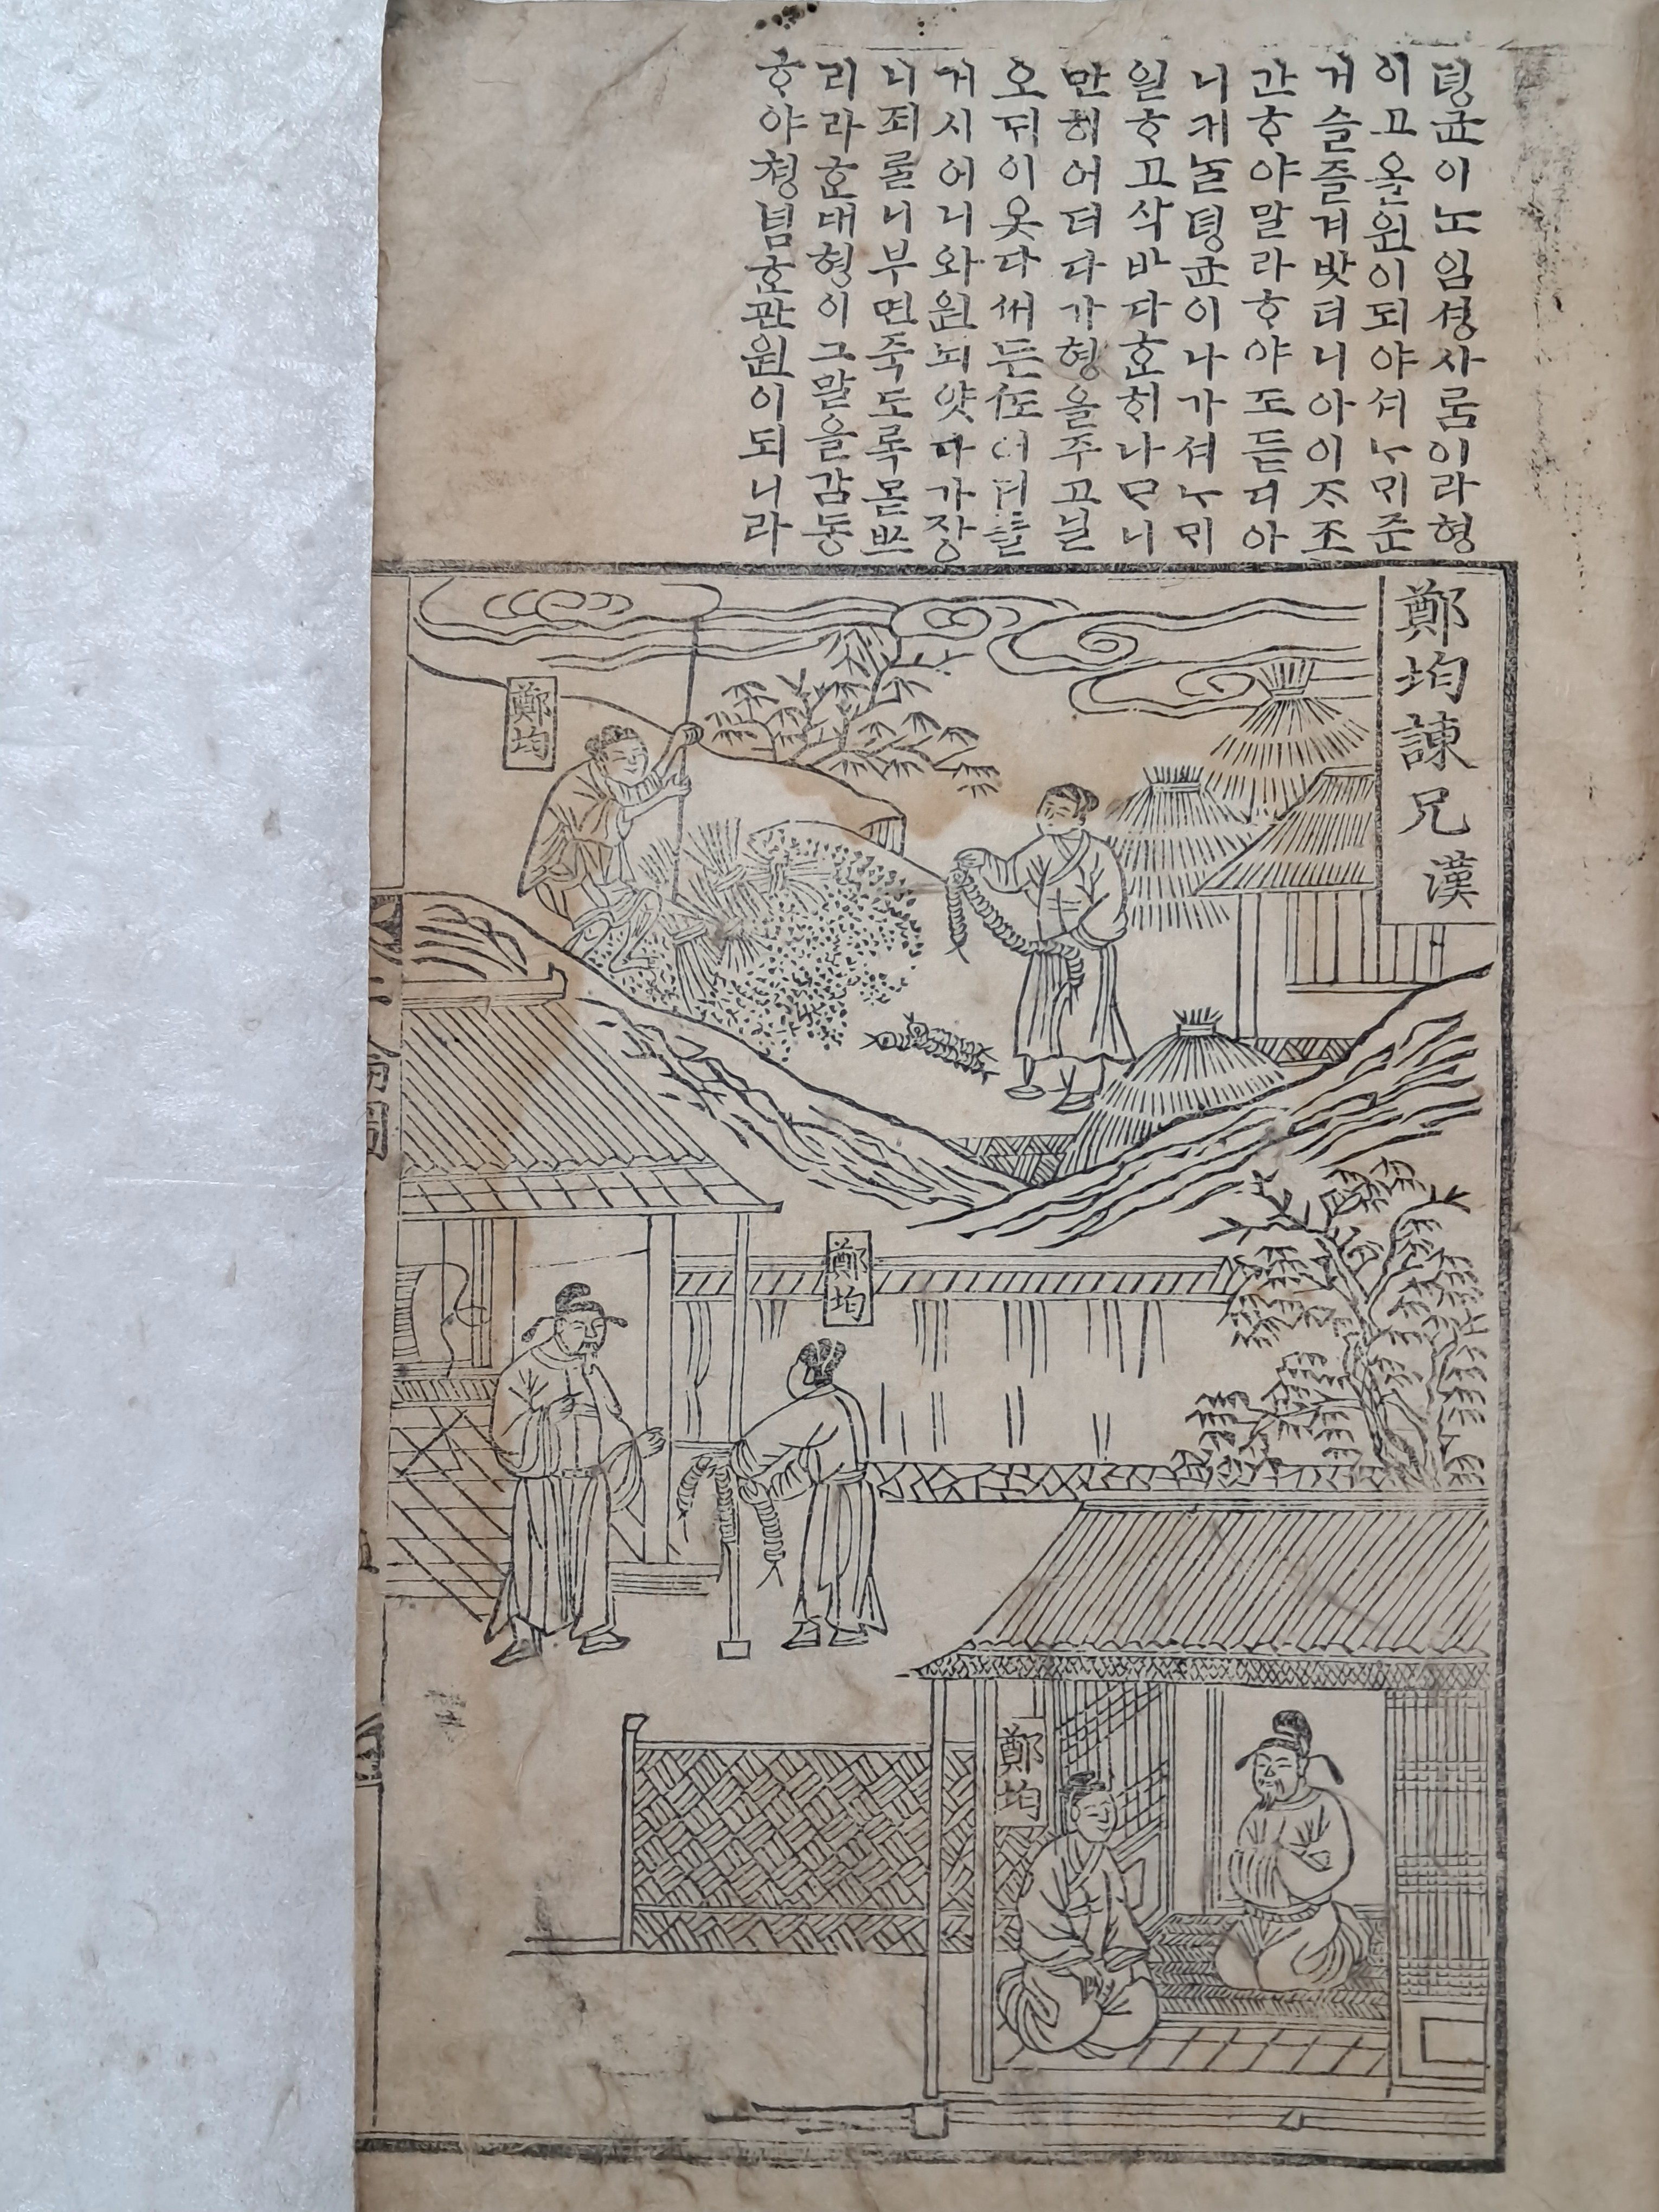 뎡균이노임셩사ᄅᆞᆷ이라형
이고올원이되야셔ᄂᆞᄆᆡ준
거슬즐겨밧더니아이ᄌᆞ조
간ᄒᆞ야말라ᄒᆞ야도듣디아
니커ᄂᆞᆯ뎡균이나가셔ᄂᆞᄆᆡ
일ᄒᆞ고삭바다ᄒᆞᆫᄒᆡ나ᄆᆞ니
만히어더다가형을주고닐
오ᄃᆡ이옷다ᄡᅥ든ᄯᅩ어더
거시어니와원되얏다가장
니죄ᄅᆞᆯ니부면죽도록몯ᄡᅳ
리라ᄒᆞᆫ대형이그말을감동
ᄒᆞ야쳥념ᄒᆞᆫ관원이되니라
鄭均諫兄 漢
鄭均
鄭均
鄭均